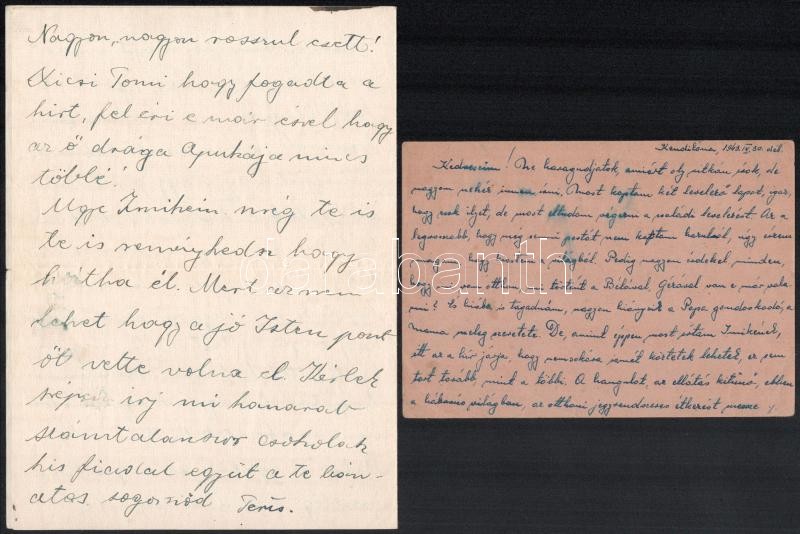 Nagyon, nagyon rosszul esett!
Kicsi Tomi hogy fogadta a
hirt, fel éri e már ésvel hogy
az ő drága Apukája nincs
többé!
Ugye Imikém, még te is
te is reménykedsz hogy
hátha él. Mert az nem
lehet hogy a jó Isten pont
őt vette volna el. Kérlek
szépen irj mi hamarab
számtalanszor csokolak
kis fiaddal együt a te bán-
atos sogornőd Terus.
1943. IV. 30. dél.
Kedveseim! Ne haragudjatok, amiért oly ritkán irok, de
nagyon nehéz innen irni. Most kaptam két levelező lapot, igaz,
hogy csak ilyet, de most eltudom végezni a családi levelezést. Az a
legrosszabb, hogy még semmi postát nem kaptam hazulról, úgy érzem
magam, hogy a világból. Pedig nagyon érdekel minden,
hogy van otthon, mi történt a Bélával, Gézával van e már vala-
mi? És hiába is tagadnám, nagyon hiányzik a Papa gondoskodó, a
mama meleg szeretete. De, amint éppen most irtam Imikének,
itt az a hír járja, hogy nemsokára ismét köztetek lehetek, ez sem
tart tovább, mint a többi. A hangulat, az ellátás kitünő, ebben
a háborús világban, az otthoni jegyrendszeres étkezést messze
darabanth